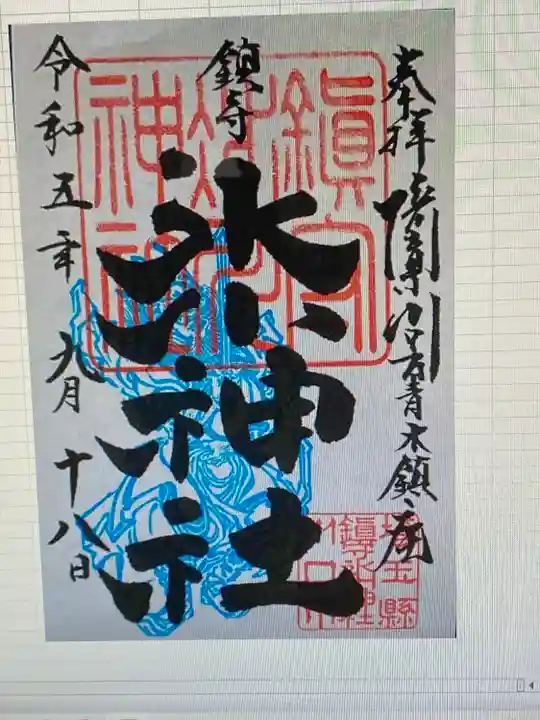 奉拝 川口 青木鎮座
鎮守
氷川神社
令和五年九月十八日
鎮守
氷川
神社
埼玉縣